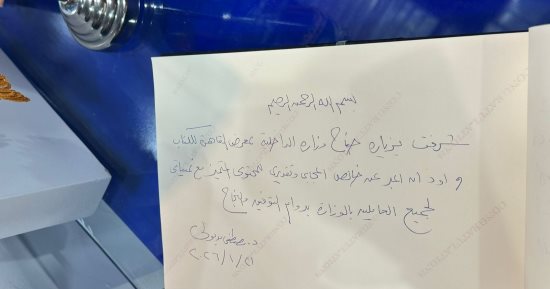 بسم الله الرحمن الرحيم
تشرفت بزيارة جناح وزارة الداخلية بمعرض القاهرة للكتاب
و أود أن أعبر عن خالص اعجابي وتقديري للمحتوى المتميز مع تمنياتي
لجميع العاملين بالوزارة بدوام التوفيق والنجاح
د. مصطفى مدبولي
٢٠٢٦/١/٢١